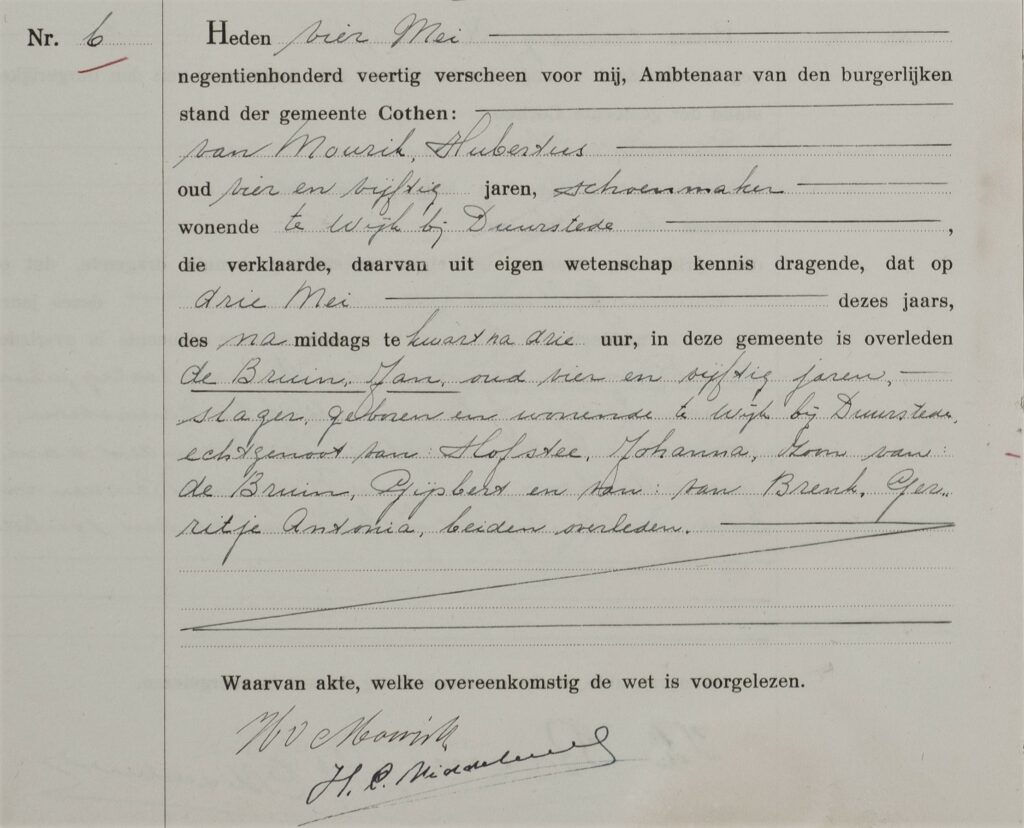 Nr. 6
Heden vier Mei
negentienhonderd veertig verscheen voor mij, Ambtenaar van den burgerlijken
stand der gemeente Cothen:
van Mourik, Hubertus
oud vier en vijftig jaren, schoenmaker
wonende te Wijk bij Duurstede,
die verklaarde, daarvan uit eigen wetenschap kennis dragende, dat op
drie Mei dezes jaars,
des na middags te kwart na drie uur, in deze gemeente is overleden
de Bruin, Jan, oud vier en vijftig jaren,
slager, geboren en wonende te Wijk bij Duurstede,
echtgenoot van: Hofstee, Johanna, zoon van:
de Bruin, Gijsbert en van: van Brenk, Ger„
ritje Antonia, beiden overleden.
Waarvan akte, welke overeenkomstig de wet is voorgelezen.
H v Mourik
H. C. Middelweerd